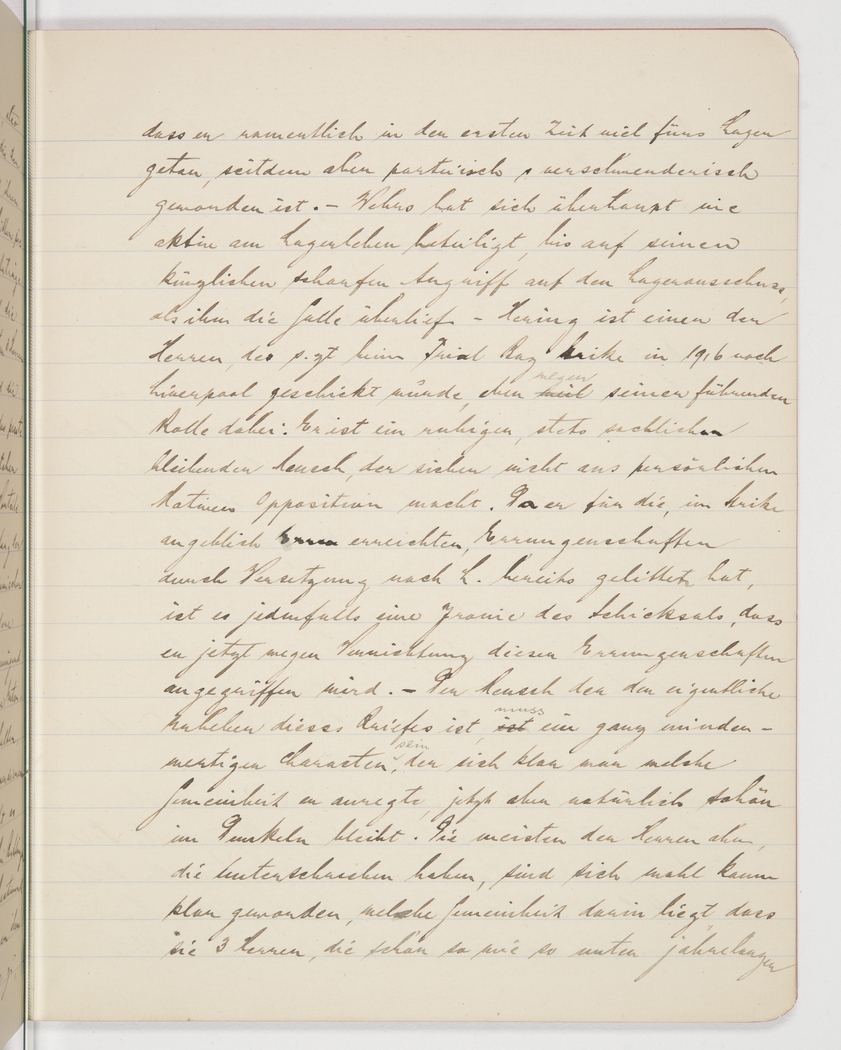 dass er namentlich in der ersten Zeit viel fürs Lager
getan, seitdem aber parteiisch & verschwenderisch
geworden ist. – Wehrs hat sich überhaupt nie
aktiv am Lagerleben beteiligt, bis auf seinen
kürzlichen scharfen Angriff auf den Lagerausschuss,
als ihm die Galle überlief – Hering ist einer der
Herren, der s. Zt beim Trial Bay Strike in 1916 nach
Liverpool geschickt wurde, eben ~~weil~~ wegen seiner führenden
Rolle dabei. Er ist ein ruhiger, stets sachlicher
bleibender Mensch, der sicher nicht aus persönlichen
Motiven Opposition macht. Da er für die, im Strike
angeblich erreichten, Errungenschaften
durch Versetzung nach L. bereits gelitten hat,
ist es jedenfalls eine Ironie des Schicksals, dass
er jetzt wegen Vernichtung dieser Errungenschaften
angegriffen wird. – Der Mensch der der eigentliche
Urheber dieses Briefes ist, ~~ist~~ muss ein ganz minder-
wertiger Charakter sein, der sich klar war welche
Gemeinheit er anregte, jetzt aber natürlich schön
im Dunkeln bleibt. Die meisten der Herren aber,
die unterschrieben haben, sind sich wohl kaum
klar geworden, welche Gemeinheit darin liegt dass
sie 3 Herren, die schon so wie so unter jahrelanger